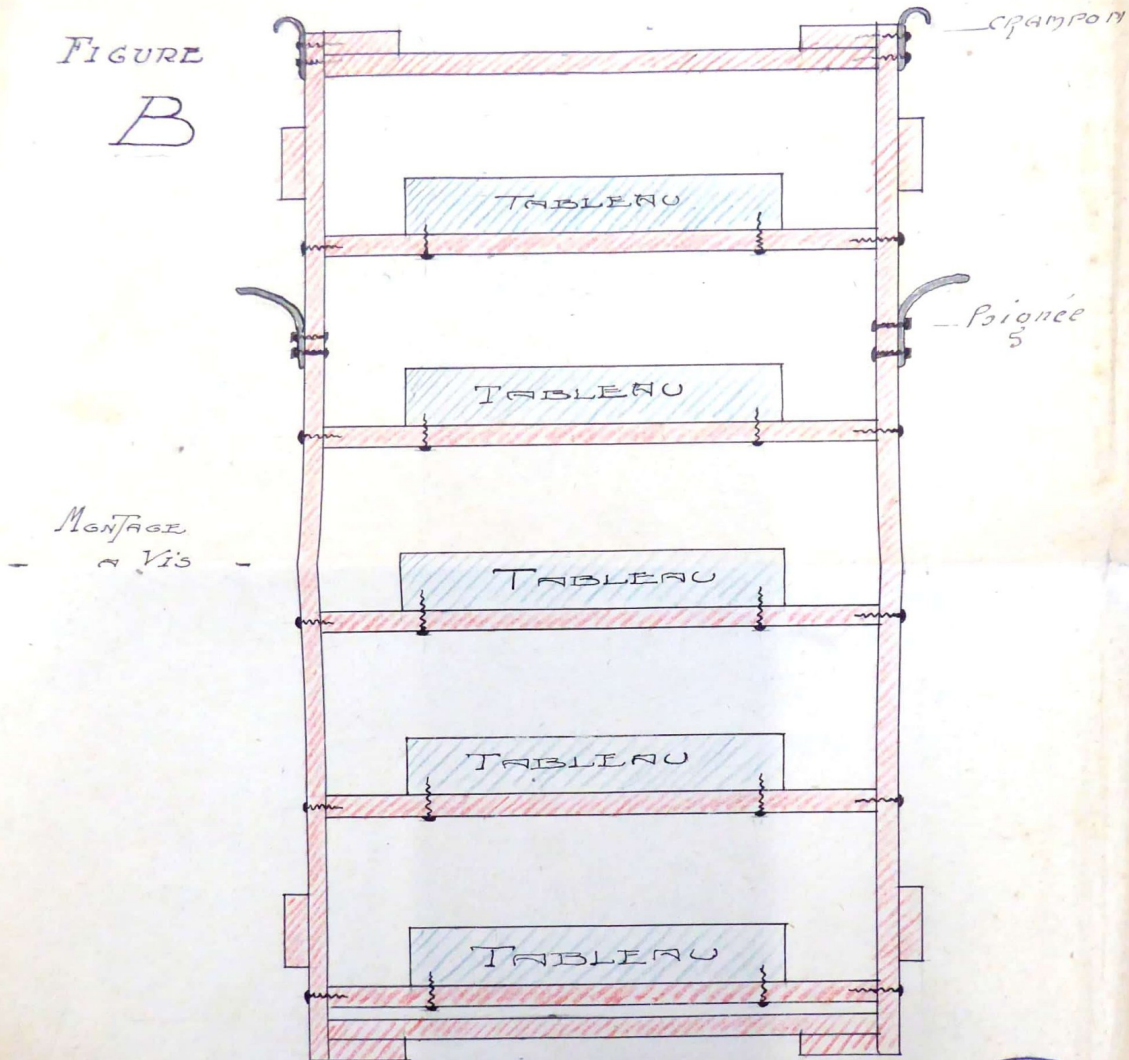 FIGURE
B
CRAMPON
TABLEAU
Poignée
s
TABLEAU
MONTAGE
- A VIS -
TABLEAU
TABLEAU
TABLEAU